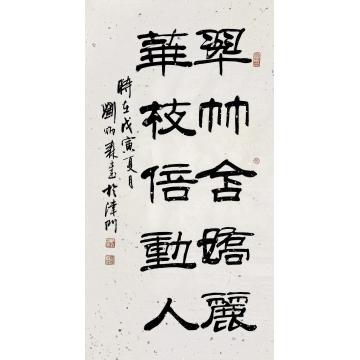 翠竹含嬌麗
華枝倍動人
時在戊寅夏月
劉炳森書於津門